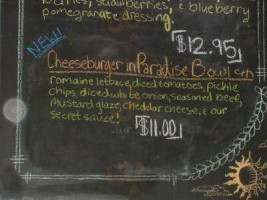 berries, strawberries, & blueberry
pomegranate dressing.
$12.95
NEW!!
Cheeseburger in Paradise Bowl
romaine lettuce, diced tomatoes, pickle
chips, diced white onion, seasoned beef,
mustard glaze, cheddar cheese, & our
secret sauce!
$11.00